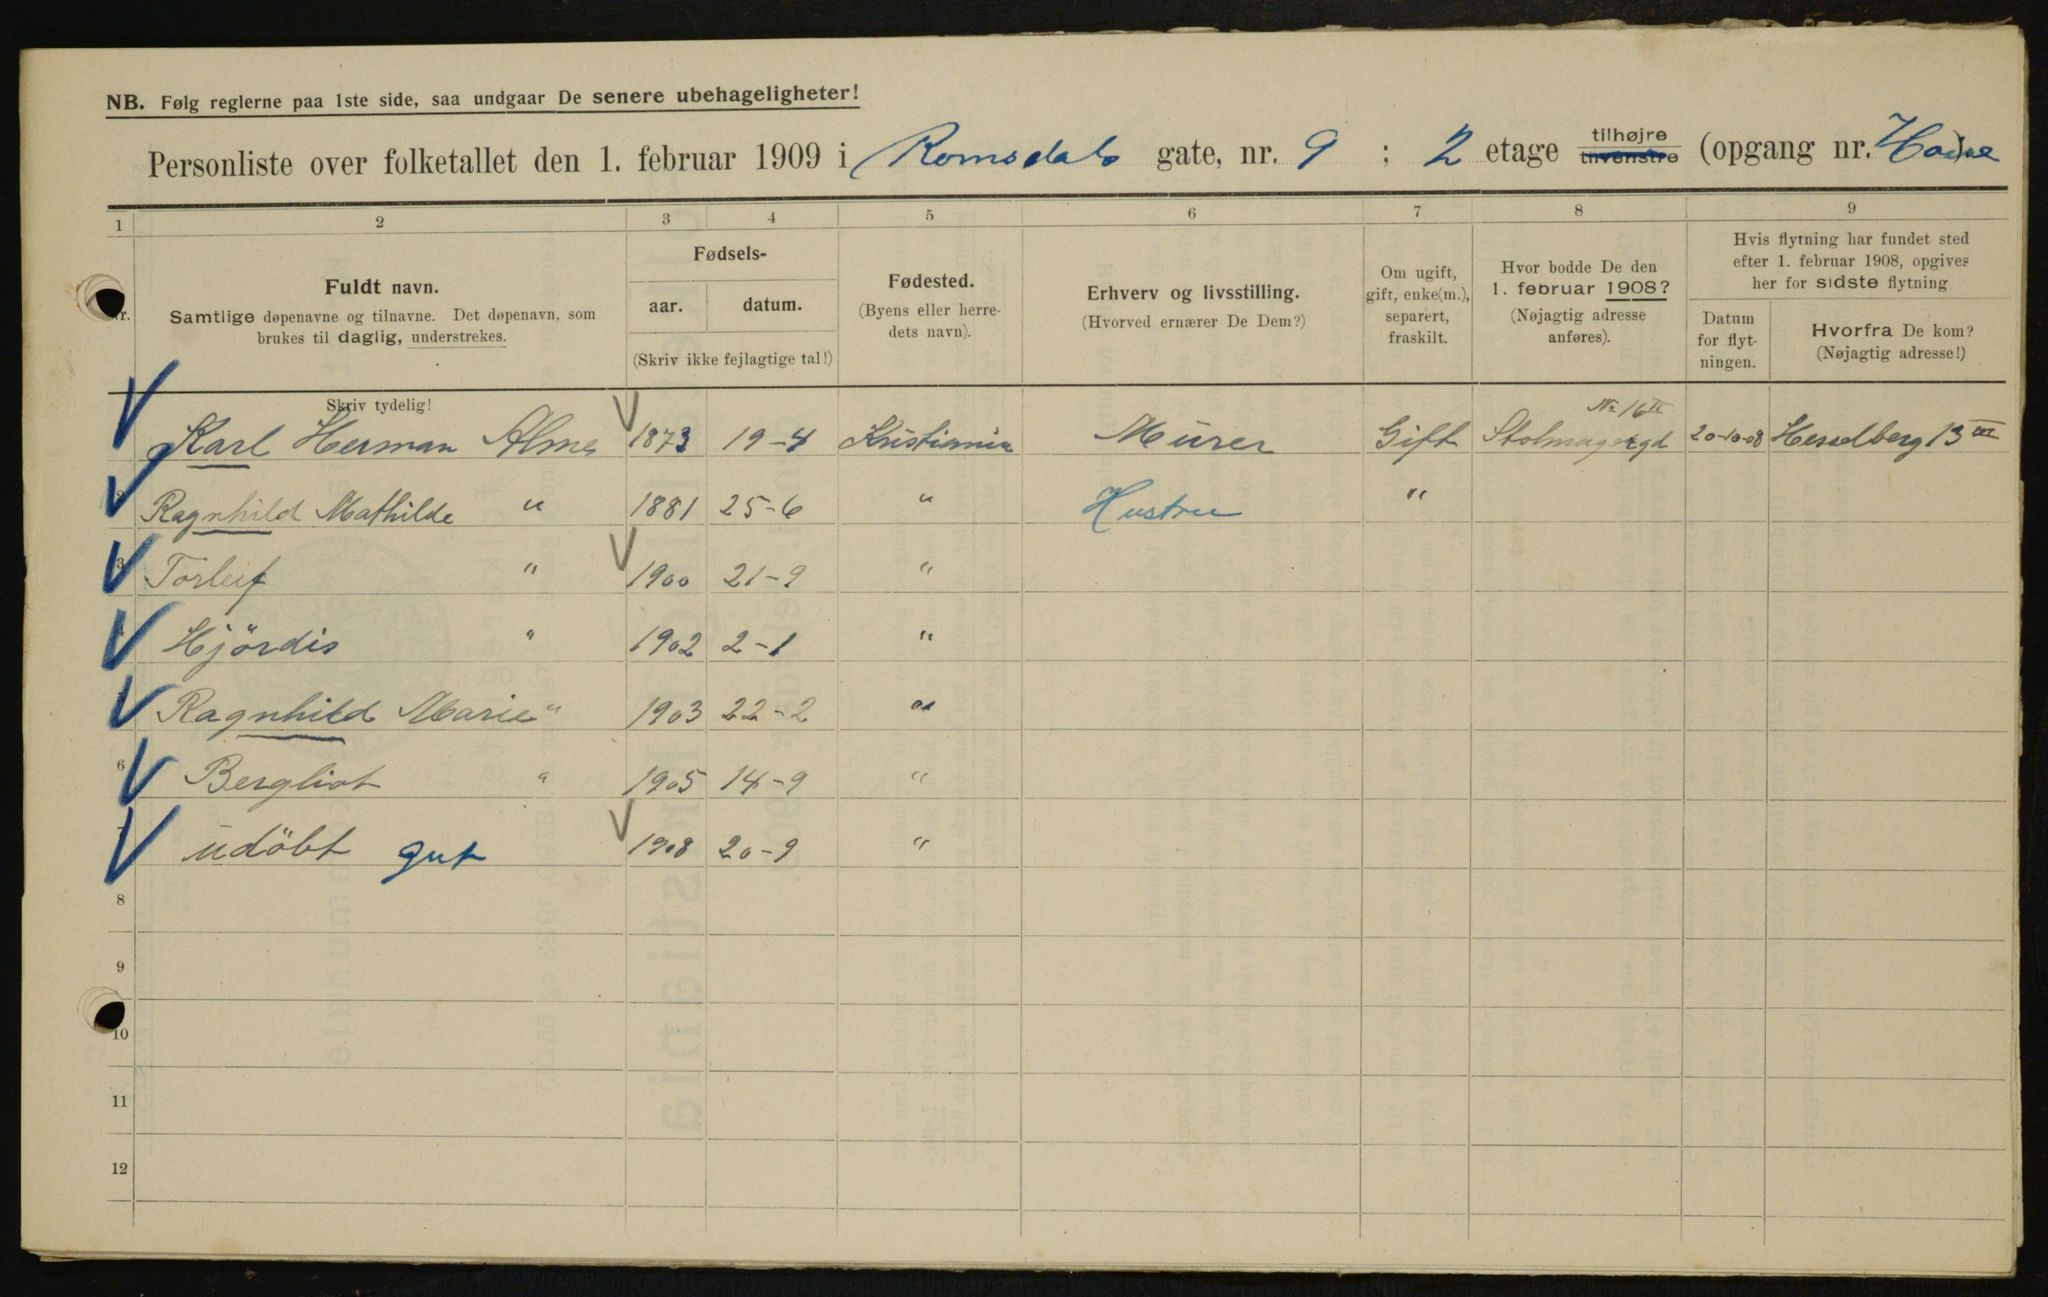 NB. Følg reglerne paa 1ste side, saa undgaar De senere ubehageligheter!
Personliste over folketallet den 1. februar 1909 i Romsdals gate, nr. 9 ; 2 etage tilhøjre tilvenstre (opgang nr.
1 2 3 4 5 6 7 8 9
Nr.
Fuldt navn.
Samtlige døpenavne og tilnavne. Det døpenavn, som
brukes til daglig, understrekes.
Skriv tydelig!
Fødsels-
aar. datum.
(Skriv ikke fejlagtige tal!)
Fødested.
(Byens eller herre-
dets navn).
Erhverv og livsstilling.
(Hvorved ernærer De Dem?)
Om ugift,
gift, enke(m.),
separert,
fraskilt.
Hvor bodde De den
1. februar 1908?
(Nøjagtig adresse
anføres).
Hvis flytning har fundet sted
efter 1. februar 1908, opgives
her for sidste flytning
Datum
for flyt-
ningen.
Hvorfra De kom?
(Nøjagtig adresse!)
No 16 II
Karl Herman Alme 1873 19-4 Kristiania Murer Gift 20-10-08 Hesselberg 13 III
2 Ragnhild Mathilde " 1881 25-6 " Hustru "
3 Torleif " 1900 21-9 "
4 Hjördis " 1902 2-1 "
5 Ragnhild Marie " 1903 22-2 "
6 Bergliot " 1905 14-9 "
7 udöbt gut 1908 20-9 "
8
9
10
11
12